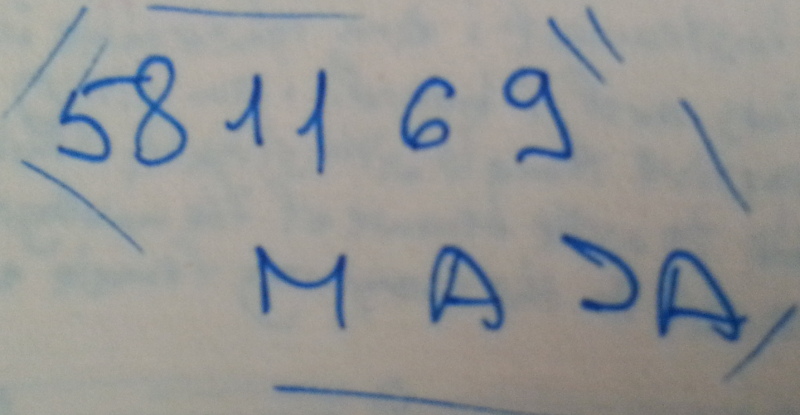 581169
MAJA